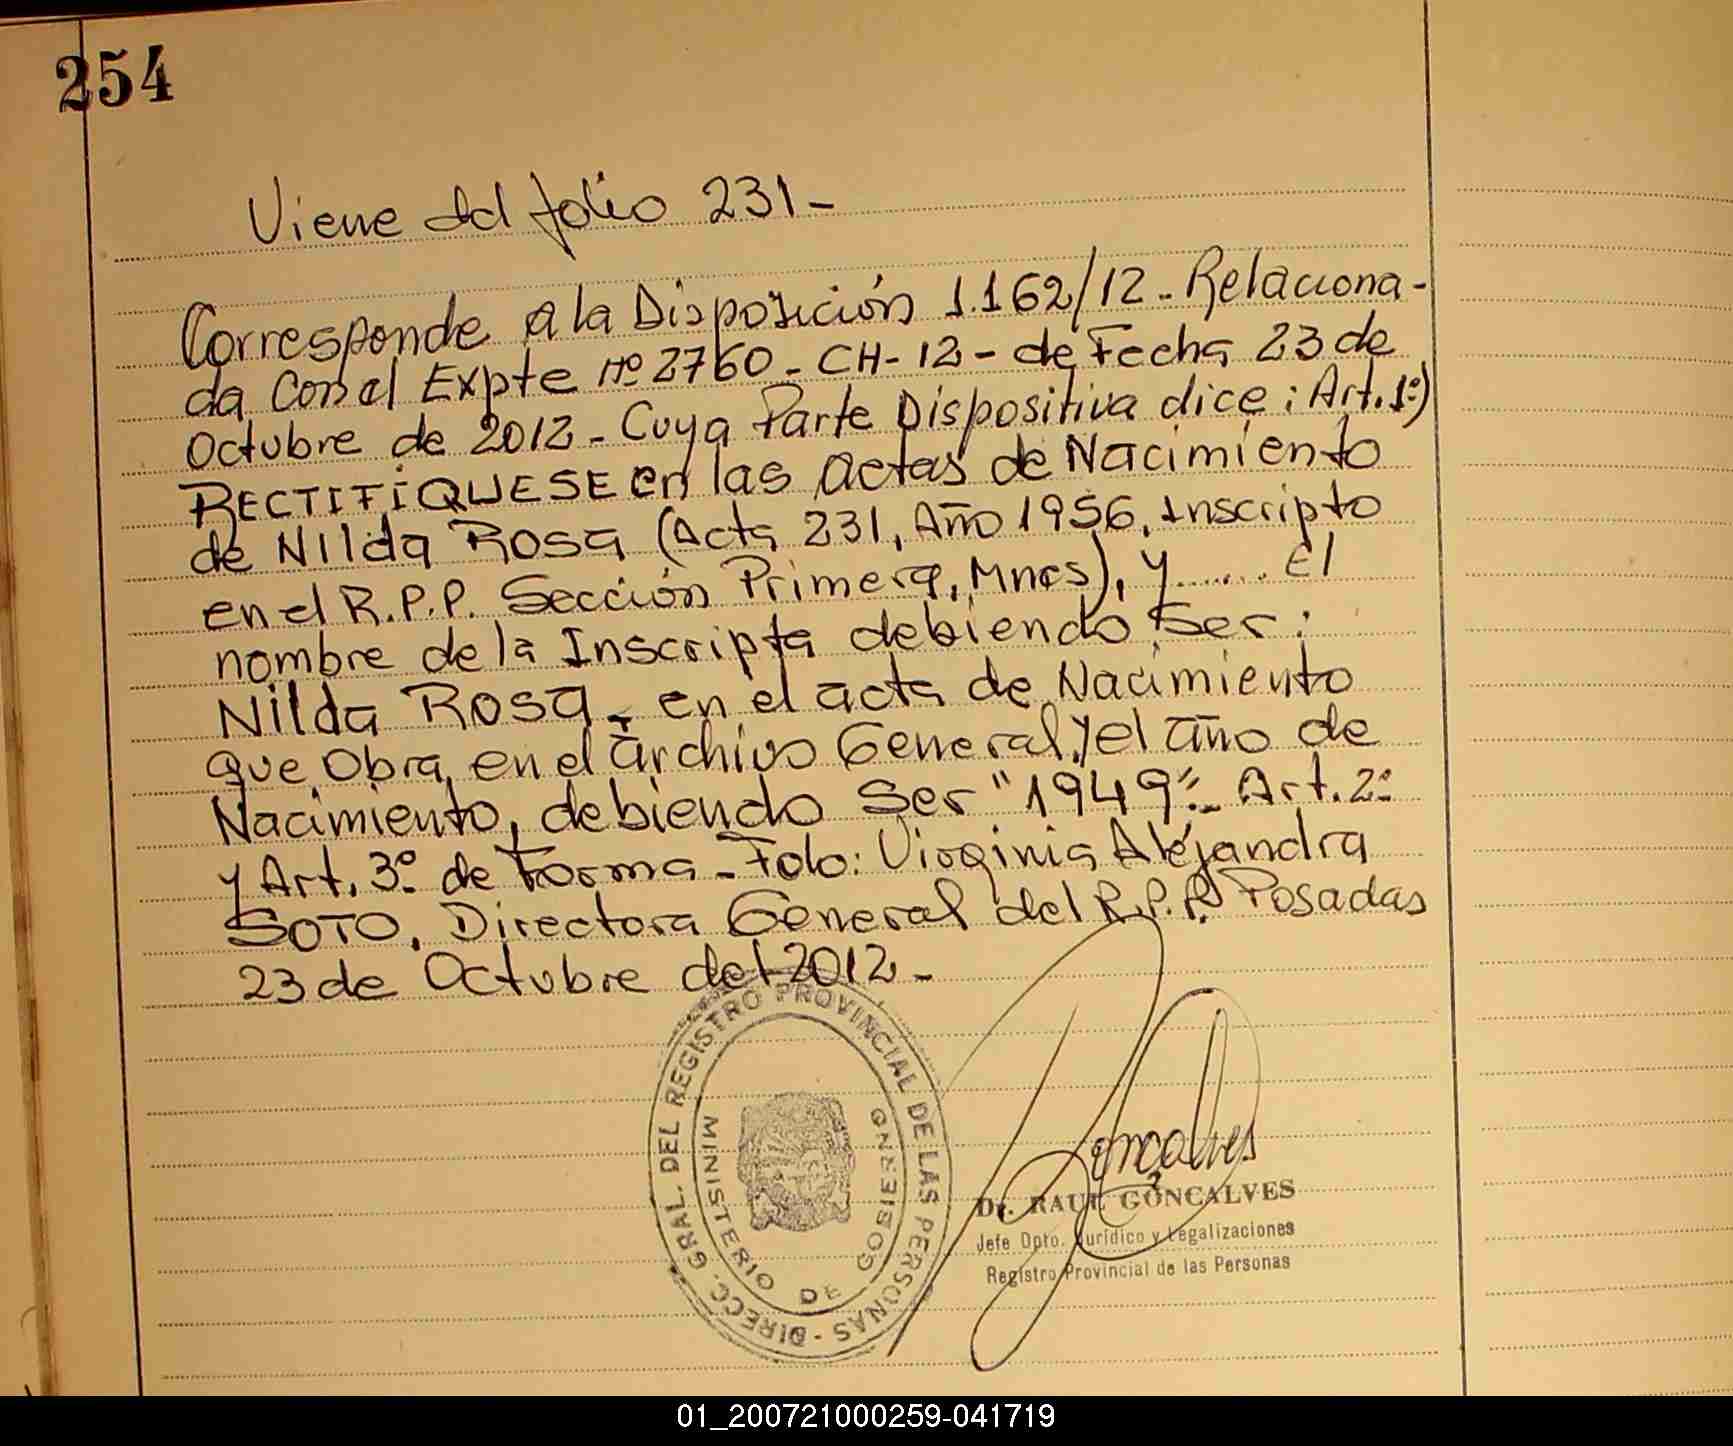 254
Viene del folio 231-
Corresponde a la Disposición 1.162/12- Relaciona-
da Con el Expte Nº 2760- CH-12- de Fecha 23 de
Octubre de 2012- Cuya Parte Dispositiva dice: Art. 1º)
RECTIFÍQUESE en las actas de Nacimiento
de Nilda Rosa (Acta 231, Año 1956, Inscripto
en el R.P.P. Sección Primera, Mnes), y ...... El
nombre de la Inscripta debiendo ser:
Nilda Rosa, en el acta de Nacimiento
que Obra en el archivo General, y el año de
Nacimiento, debiendo Ser "1949".- Art. 2º
y Art. 3º de Forma- Fdo: Virginia Alejandra
SOTO, Directora General del R.P.P. Posadas
23 de Octubre del 2012-
DIRECC. GRAL. DEL REGISTRO PROVINCIAL DE LAS PERSONAS -
MINISTERIO DE GOBIERNO
Gonçalves
Dr. RAUL GONÇALVES
Jefe Dpto. Jurídico y Legalizaciones
Registro Provincial de las Personas
01_200721000259-041719